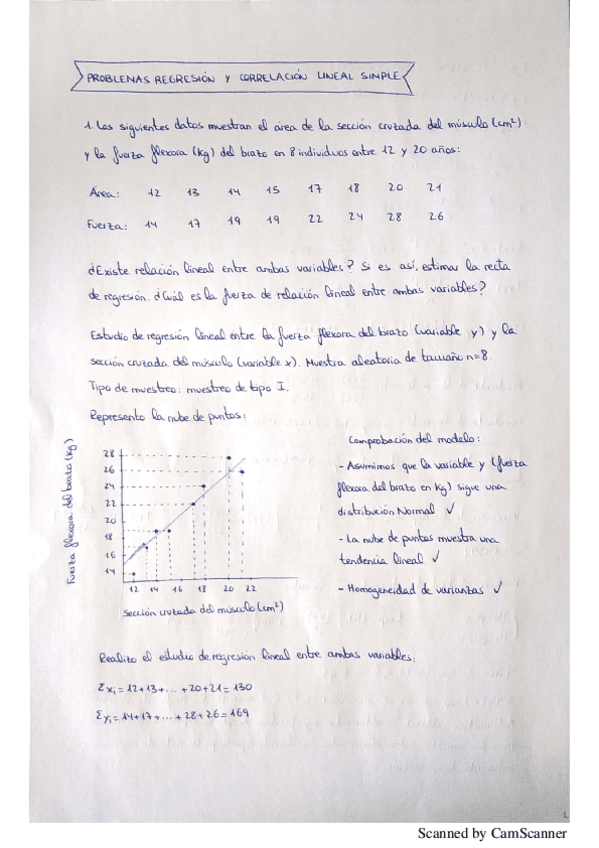 PROBLEMAS REGRESIÓN Y CORRELACIÓN LINEAL SIMPLE
1. Los siguientes datos muestran el área de la sección cruzada del músculo (cm²)
y la fuerza flexora (kg) del brazo en 8 individuos entre 12 y 20 años:
Área: 12 13 14 15 17 18 20 21
Fuerza: 14 17 19 19 22 24 28 26
¿Existe relación lineal entre ambas variables? Si es así, estimar la recta
de regresión. ¿Cuál es la fuerza de relación lineal entre ambas variables?
Estudio de regresión lineal entre la fuerza flexora del brazo (variable y) y la
sección cruzada del músculo (variable x). Muestra aleatoria de tamaño n=8.
Tipo de muestreo: muestreo de tipo I.
Represento la nube de puntos:
Fuerza flexora del brazo (kg)
28
26
24
22
20
18
16
14
12 14 16 18 20 22
Sección cruzada del músculo (cm²)
Comprobación del modelo:
- Asumimos que la variable y (fuerza
flexora del brazo en kg) sigue una
distribución Normal ✓
- La nube de puntos muestra una
tendencia lineal ✓
- Homogeneidad de varianzas ✓
Realizo el estudio de regresión lineal entre ambas variables,
Σxᵢ = 12+13+...+20+21 = 130
Σyᵢ = 14+17+...+28+26 = 169
Scanned by CamScanner